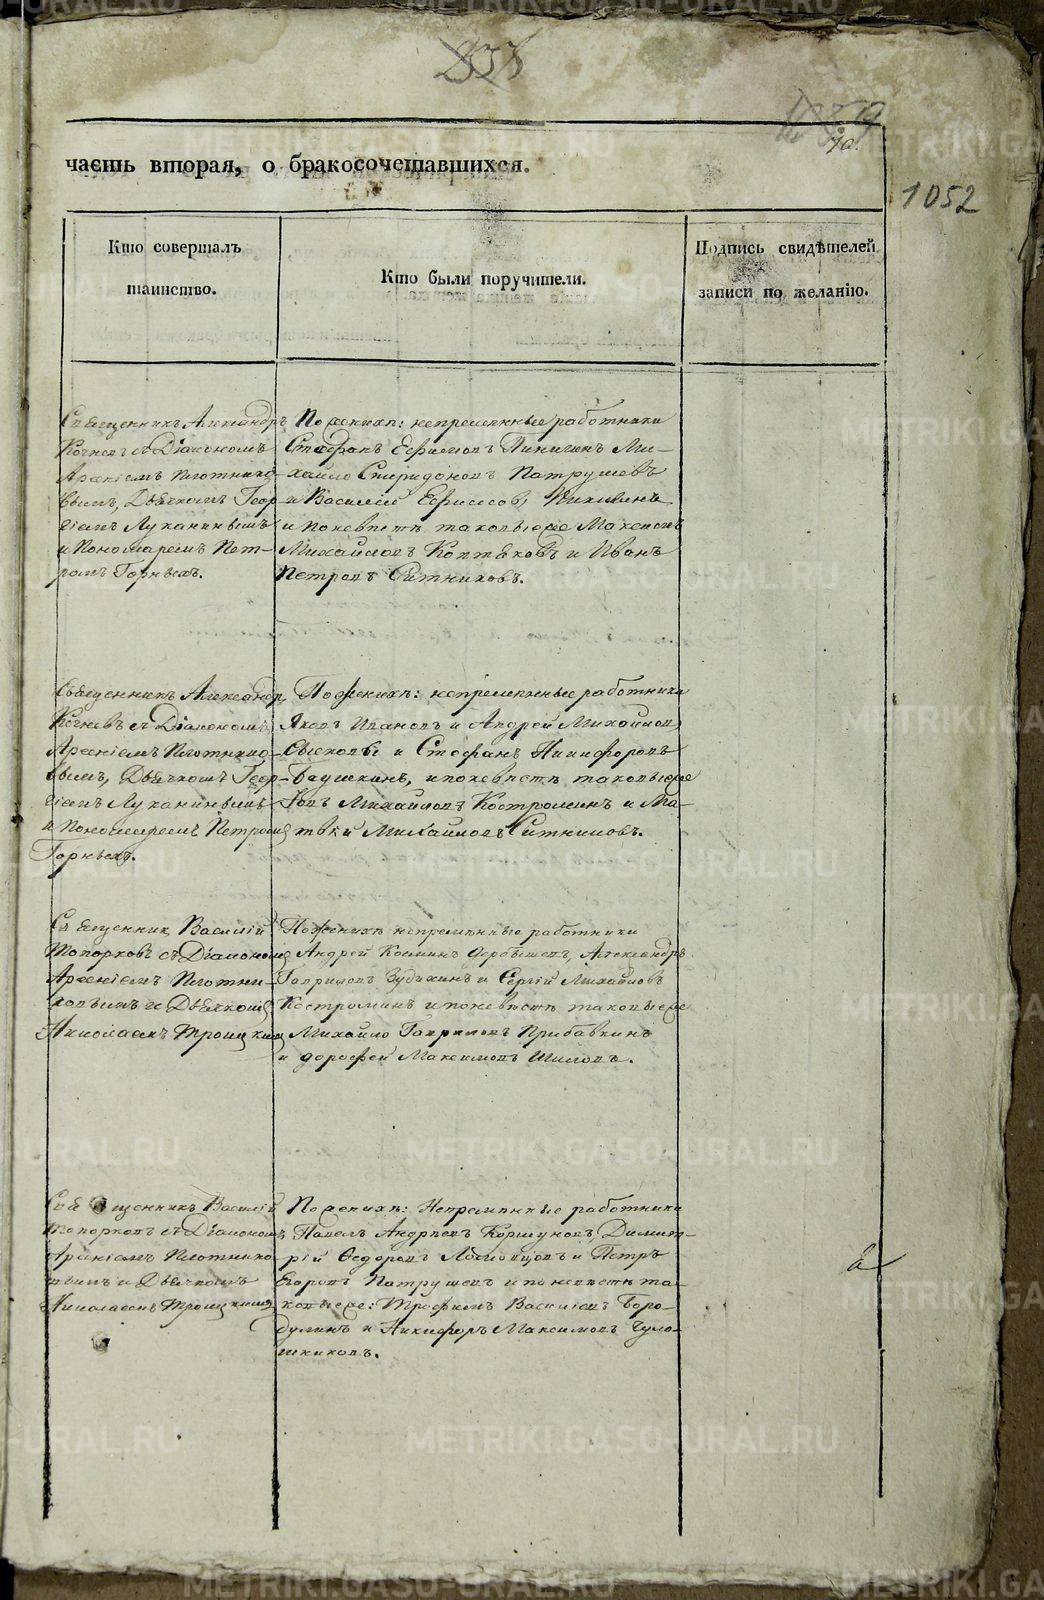 838
часть вторая, о бракосочетавшихся.
1052
Кто совершалъ
таинство.
Кто были поручители.
Подпись свидѣтелей
записи по желанію.
Священникъ Александръ
Кочневъ съ Діакономъ
Арсеніемъ Плотнико-
вымъ, Дьячкомъ Геор-
гіемъ Луканинымъ
и Пономаремъ Пет-
ромъ Горныхъ.
По женихѣ: непременные работники
Стефанъ Ефимовъ Пинигинъ Ми-
хайло Спиридоновъ Патрушевъ
и Василій Ефимовъ
и по невѣстѣ таковые же Максимъ
Михайловъ Коптяковъ и Иванъ
Петровъ Ситниковъ.
Священникъ Александръ
Кочневъ съ Діакономъ
Арсеніемъ Плотнико-
вымъ, Дьячкомъ Геор-
гіемъ Луканинымъ
и Пономаремъ Петромъ
Горныхъ.
По женихѣ: непременные работники
Яковъ Ивановъ и Андрей Михайловъ
и Стефанъ Никифоровъ
и по невѣстѣ таковые же
Михайловъ Костроминъ и Ма-
твѣй Михайловъ Ситниковъ.
Священникъ Василій
Топорковъ съ Діакономъ
Арсеніемъ Плотни-
ковымъ и Дьячкомъ
Николаемъ Троицкимъ
По женихѣ непременные работники
Андрей Козминъ Александръ
Гавриловъ Зубихинъ и Сергій Михайловъ
Костроминъ и по невѣстѣ таковые же
Михайло Гавриловъ Прибавкинъ
и дорофей Максимовъ Шиловъ.
Священникъ Василій
Топорковъ съ Діакономъ
Арсеніемъ Плотнико-
вымъ и Дьячкомъ
Николаемъ Троицкимъ
По женихѣ: Непременные работники
Павелъ Андреевъ Коршуновъ, Димит-
рій Федоровъ и Петръ
Егоровъ Патрушевъ и по невѣстѣ та-
ковые же: Трофимъ Васильевъ Боро-
дулинъ и Никифоръ Максимовъ Чуло-
шниковъ.
METRIKI.GASO-URAL.RU